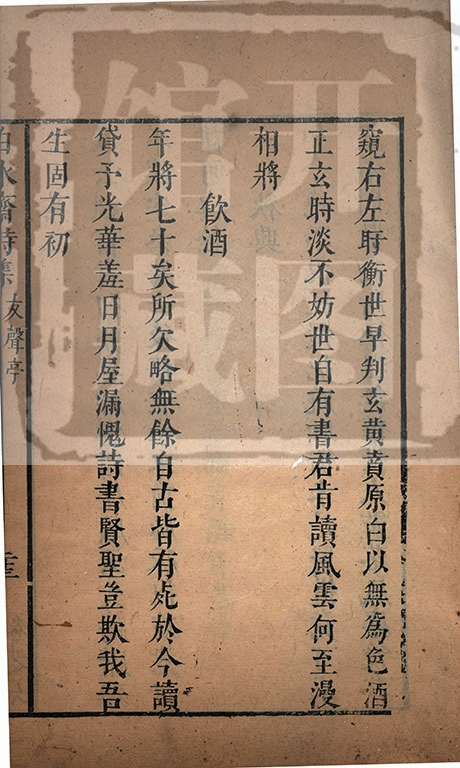 窺右左盱衡世早判玄黄賁原白以無為色酒
正玄時淡不妨世自有書君肯讀風雲何至漫
相將
飲酒
年將七十矣所欠略無餘自古皆有死於今讀
貸予光華羞日月屋漏愧詩書賢聖豈欺我吾
生固有初
白水齋詩集 友聲亭
開圖
館藏